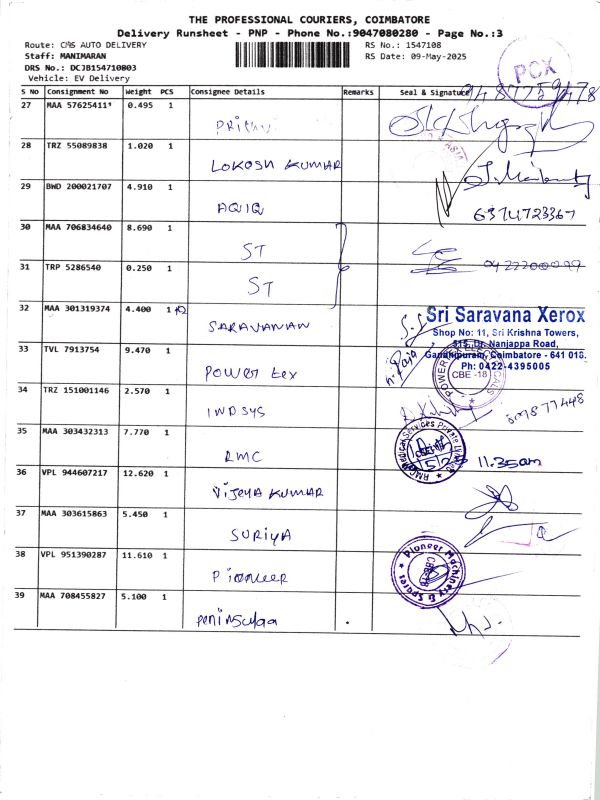 THE PROFESSIONAL COURIERS, COIMBATORE
Delivery Runsheet - PNP - Phone No.:9047080280 - Page No.:3
Route: CMS AUTO DELIVERY
Staff: MANIMARAN
DRS No.: DCJB154710803
Vehicle: EV Delivery
RS No.: 1547108
RS Date: 09-May-2025
PCX
S No Consignment No Weight PCS Consignee Details Remarks Seal & Signature
27 MAA 57625411* 0.495 1 Prithvi
28 TRZ 55089838 1.020 1 LOKOSH KUMAR
29 BWD 200021707 4.910 1 AQIQ
6374723367
30 MAA 706834640 8.690 1 ST
31 TRP 5286540 0.250 1 ST
32 MAA 301319374 4.400 1 SARAVANAN
Sri Saravana Xerox
Shop No: 11, Sri Krishna Towers,
515, Dr. Nanjappa Road,
Gandhipuram, Coimbatore - 641 018.
Ph: 0422-4395005
33 TVL 7913754 9.470 1 Power tex
CBE -18
34 TRZ 151001146 2.570 1 INDSYS
35 MAA 303432313 7.770 1 RMC
11.35am
36 VPL 944607217 12.620 1 Vijeya KUMAR
37 MAA 303615863 5.450 1 SURIYA
38 VPL 951390287 11.610 1 Pioneer
Pioneer Machinery & Spares
39 MAA 708455827 5.100 1 Peninsulaa